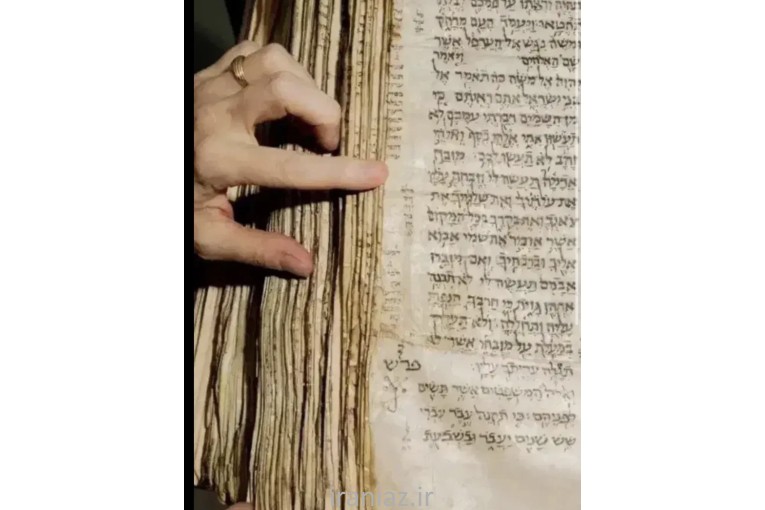 תהיה יראתו על פניכם לבלתי
תחטאו: ויעמד העם מרחק
ומשה נגש אל הערפל אשר
שם האלהים ויאמר
יהוה אל משה כה תאמר אל
בני ישראל אתם ראיתם כי
מן השמים דברתי עמכם לא
תעשון אתי אלהי כסף ואלהי
זהב לא תעשו לכם: מזבח
אדמה תעשה לי וזבחת עליו
את עלתיך ואת שלמיך את
צאנך ואת בקרך בכל המקום
אשר אזכיר את שמי אבוא
אליך וברכתיך: ואם מזבח
אבנים תעשה לי לא תבנה
אתהן גזית כי חרבך הנפת
עליה ותחללה: ולא תעלה
במעלת על מזבחי אשר לא
תגלה ערותך עליו:
פרש
ואלה המשפטים אשר תשים
לפניהם: כי תקנה עבד עברי
שש שנים יעבד ובשבעת
iraniaz.ir